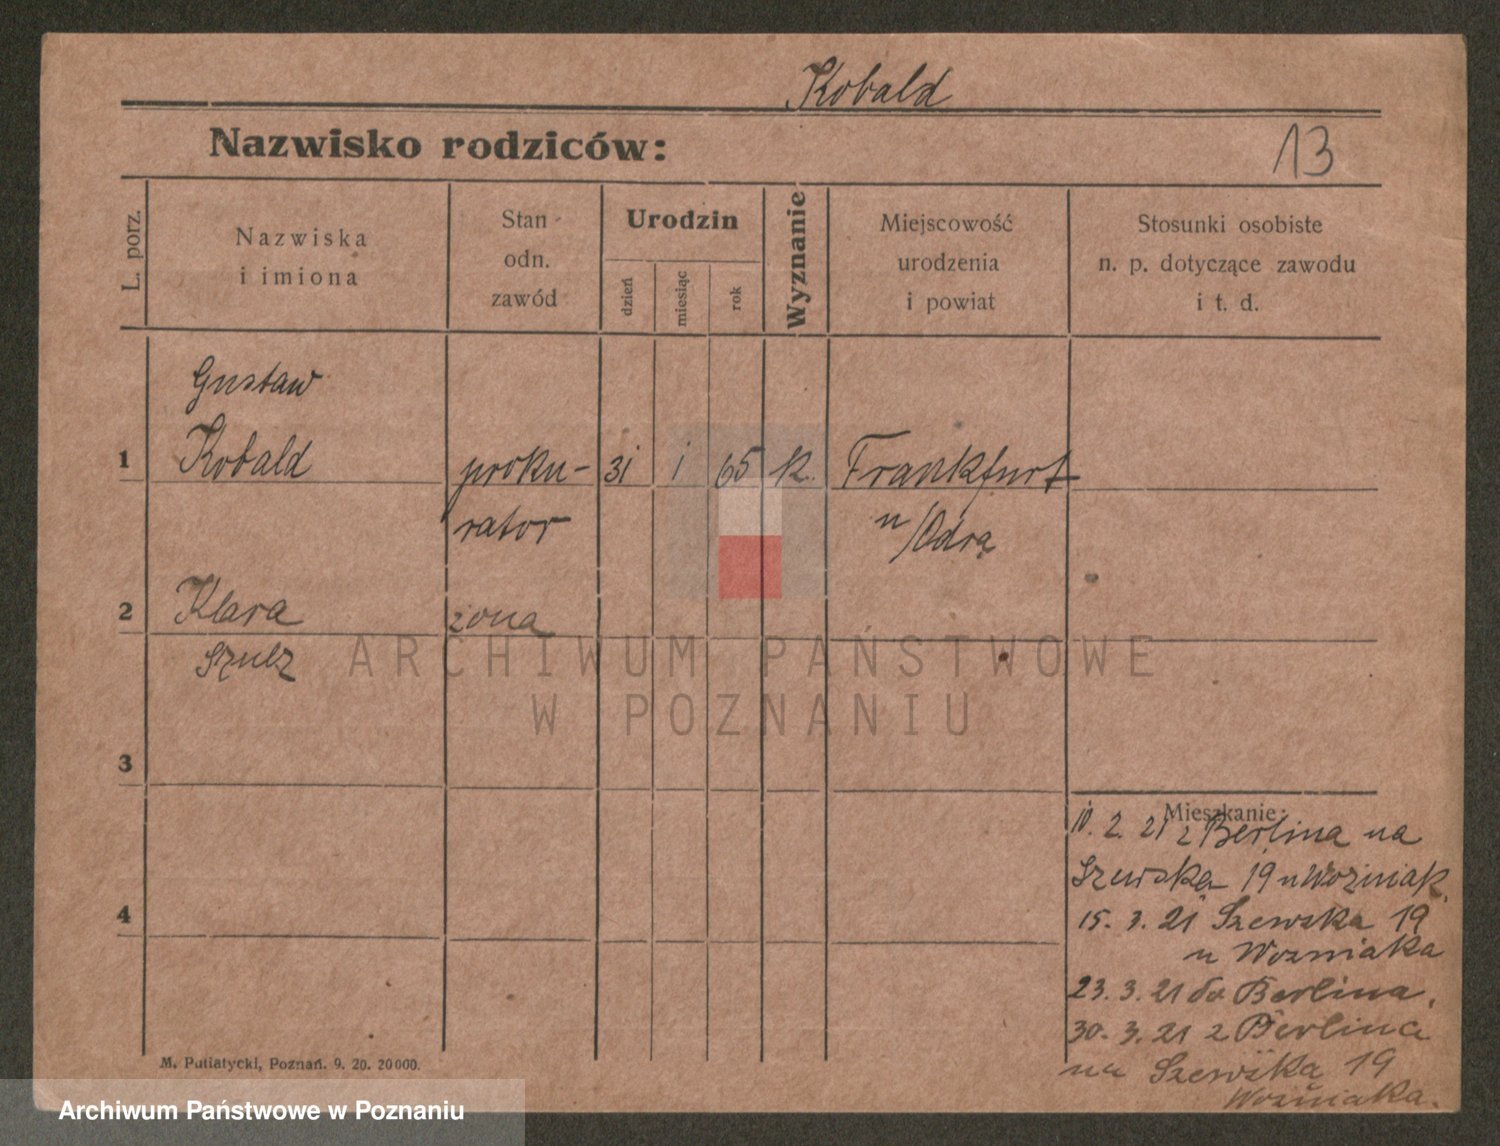 Kobald
Nazwisko rodziców:
13
L. porz.
Nazwiska
i imiona
Stan
odn.
zawód
Urodzin
dzień
miesiąc
rok
Wyznanie
Miejscowość
urodzenia
i powiat
Stosunki osobiste
n. p. dotyczące zawodu
i t. d.
Gustaw
1 Kobald proku- 31 1 65 k. Frankfurt
rator n/Odrą
2 Klara żona
Szulz
ARCHIWUM PAŃSTWOWE
W POZNANIU
3
Mieszkanie:
10. 2. 21 z Berlina na
Szewska 19 u Woźniak.
4
15. 3. 21 Szewska 19
u Wozniaka
23. 3. 21 do Berlina.
30. 3. 21 z Berlina
na Szewska 19
Woźniaka.
M. Putiatycki, Poznań. 9. 20. 20000.
Archiwum Państwowe w Poznaniu